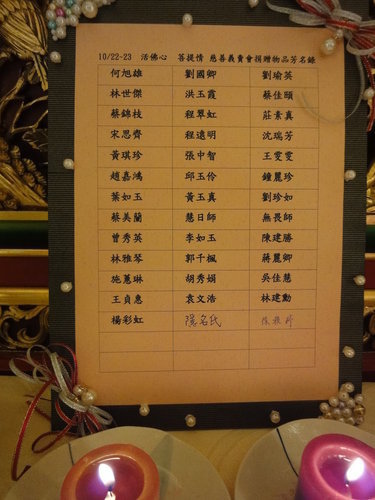 10/22-23 活佛心 菩提情 慈善義賣會捐贈物品芳名錄
何旭雄 劉國卿 劉瑜英
林世傑 洪玉霞 蔡佳頤
蔡錦枝 程翠虹 莊素真
宋思齊 程遠明 沈瑞芳
黃琪珍 張中智 王雯雯
趙嘉鴻 邱玉伶 鐘麗珍
葉如玉 黃玉真 劉珍如
蔡美蘭 慧日師 無畏師
曾秀英 李如玉 陳建勝
林雅琴 郭千楓 蔣麗卿
施蕙琳 胡秀娟 吳佳慧
王貞惠 袁文浩 林建勳
楊彩虹 隱名氏